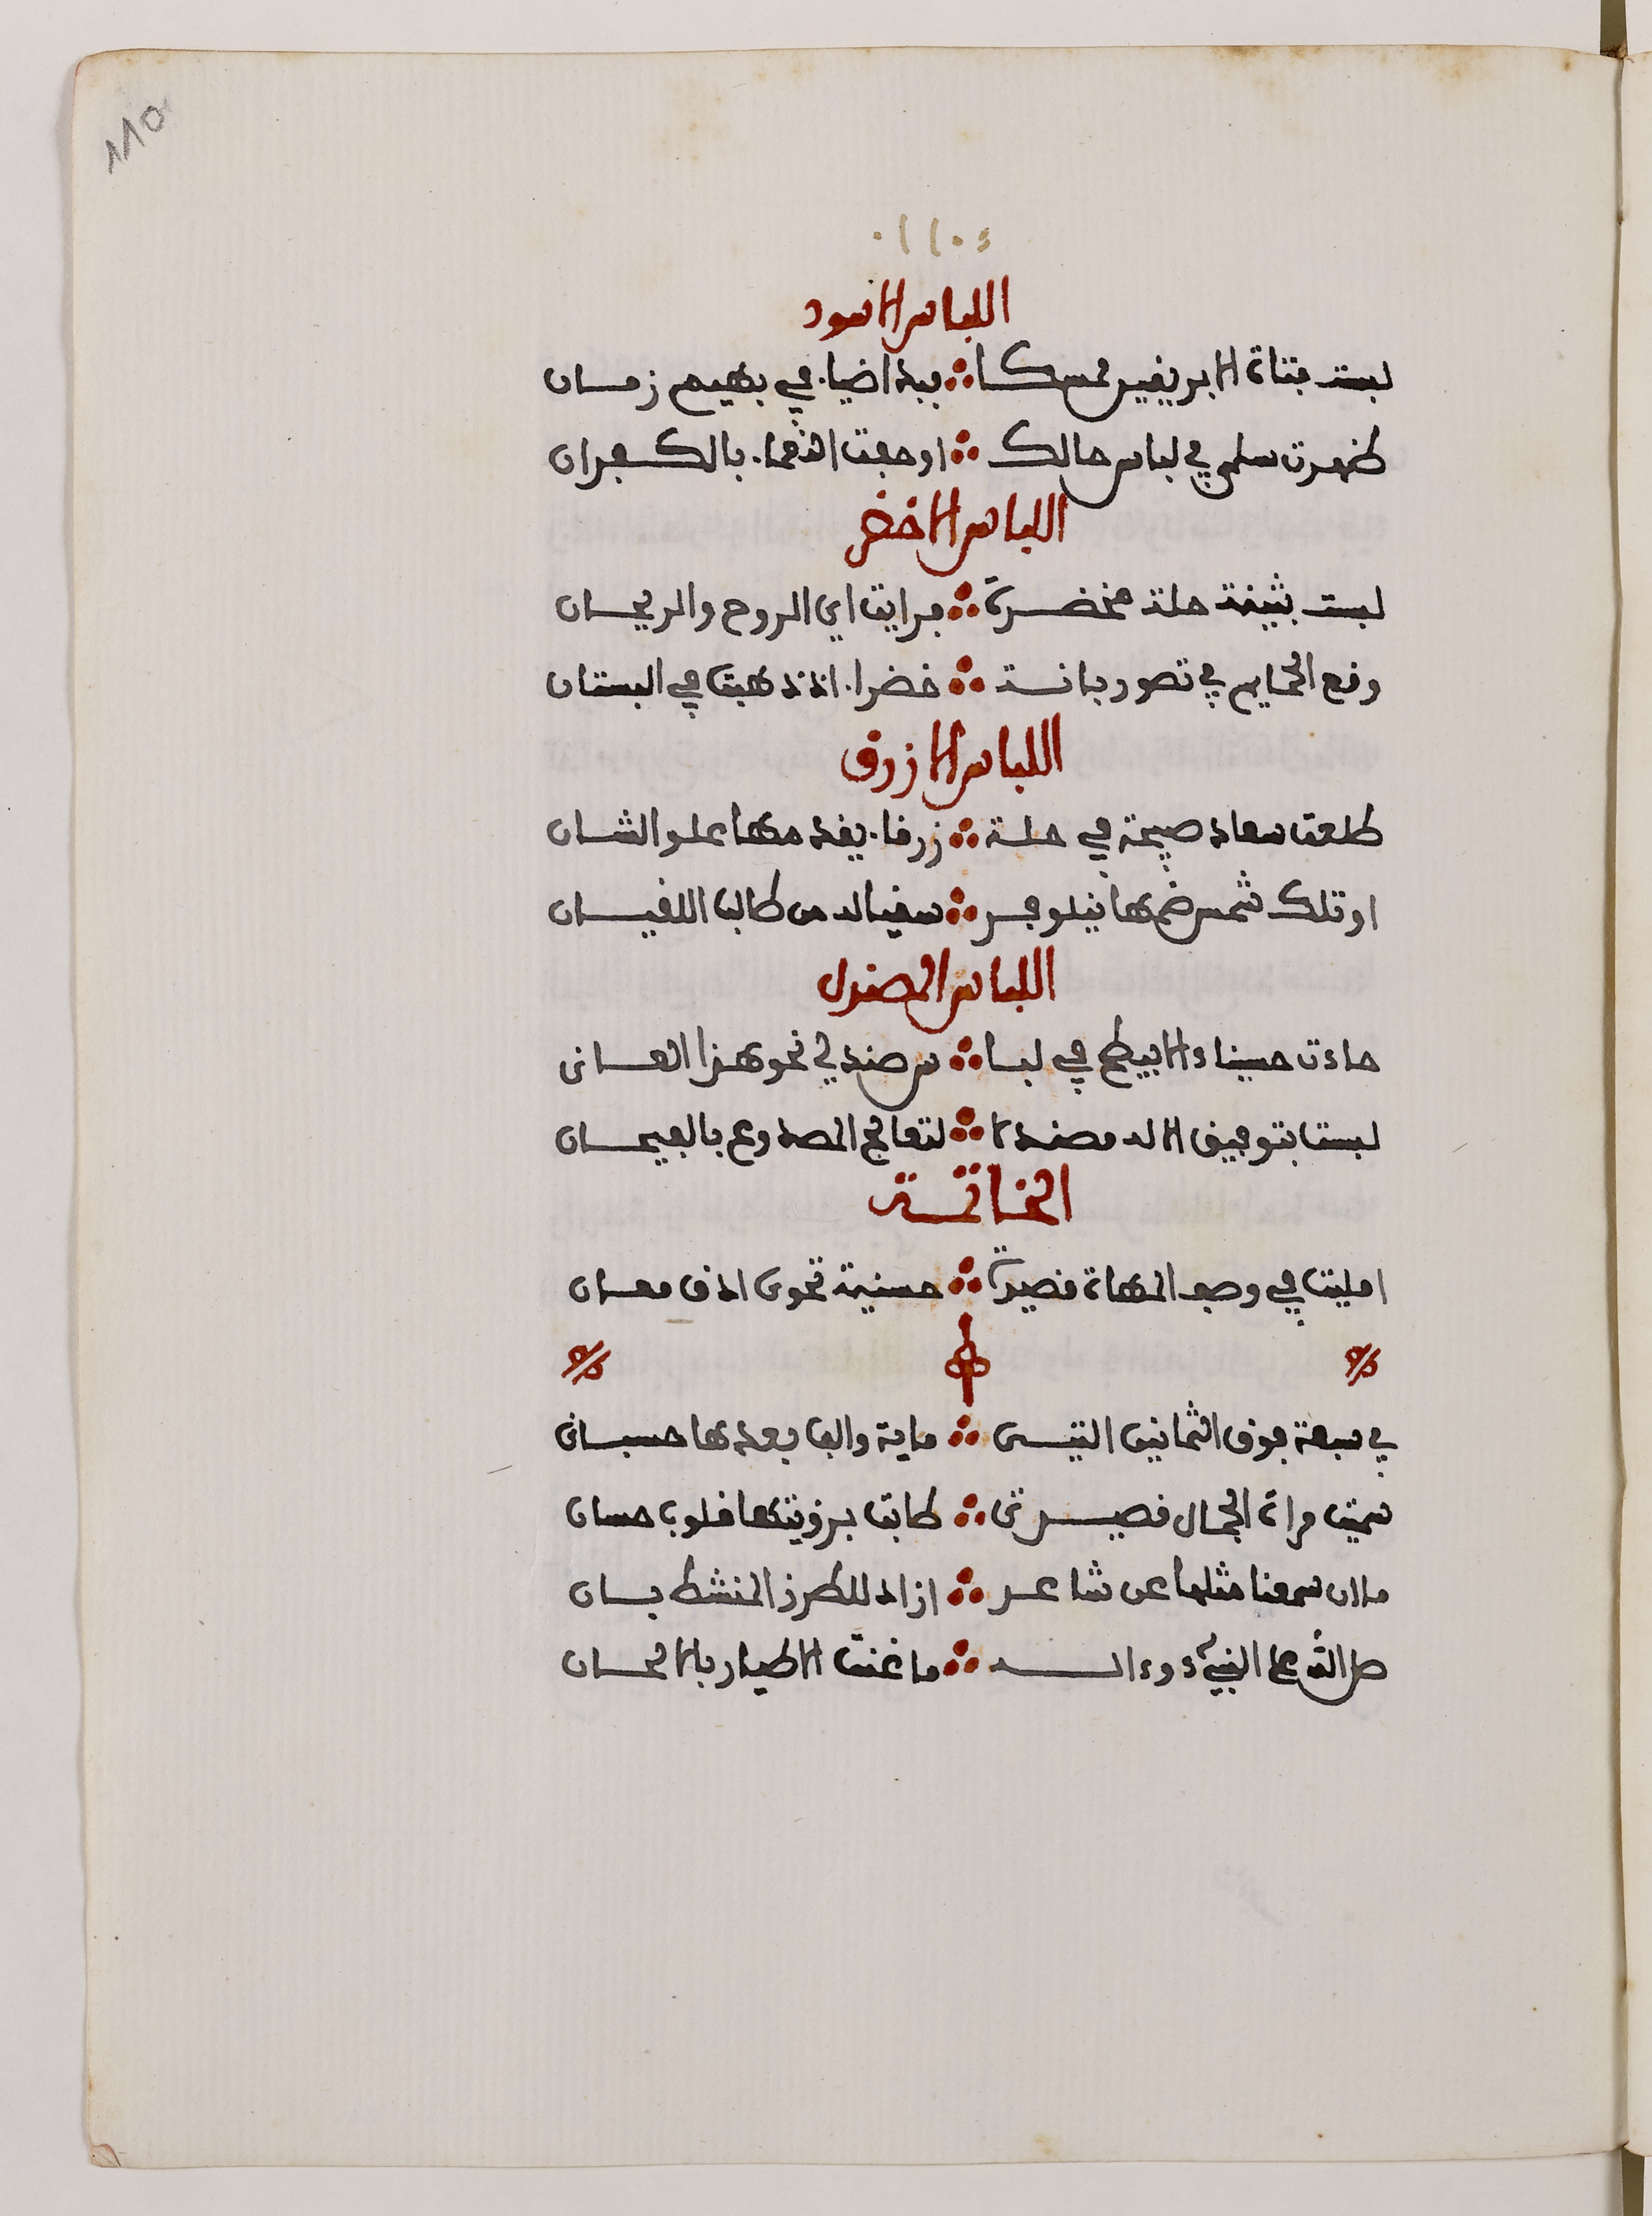 ١١٥
اللباس الاسود
لبست فتاة الابريقيس ممسكا ∴ فبدا ضياء في بهيم زمان
ظهرت سلمى في لباس حالك ∴ او حفت النعماء بالكفران
اللباس الاخضر
لبست بثينة حلة مخضرة ∴ فرايت اي الروح والريحان
وقع الحمايم في تصور بانة ∴ خضراء اذ ذهبت في البستان
اللباس الازرق
طلعت سعاد صبيحة في حلة ∴ زرقاء يقدمها علو الشان
او تلك شمس ضمها نيلوفر ∴ سقيا له من طالب اللقيان
اللباس المصندل
جاءت حسيناء الابيطح في لبا ∴ س صندلي نحو هذا العانى
لبست بتوفيق الاله مصندلا ∴ لتعالج المصدوع بالفيحان
الخاتمة
امليت في وصف المهاة قصيدة ∴ حسنية تحوى ادق معان
في سبعة فوق الثمانين التى ∴ ماية والف بعدها حسبانى
سميت مراة الجمال قصيدتى ∴ طابت برؤيتها قلوب حسان
ما ان سمعنا مثلها عن شاعر ∴ ازاد للطرز المنشط بان
صل الله على النبي وءاله ∴ ما غنت الاطيار بالالحان